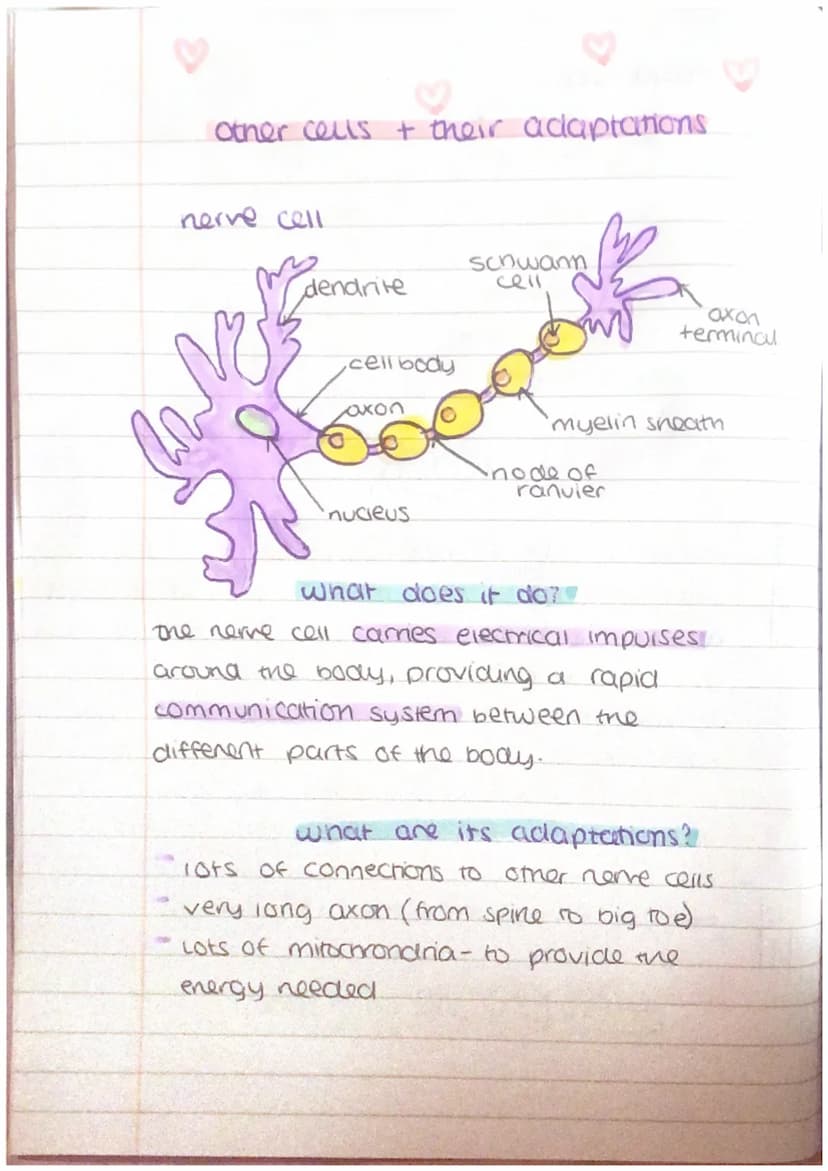 other cells + their adaptations
nerve cell
schwann
cell
dendrite
axon
terminal
cell body
axon
myelin sheath
node of
ranvier
nucleus
what does it do?
the nerve cell carries electrical impulses
around the body, providing a rapid
communication system between the
different parts of the body.
what are its adaptations?
- lots of connections to other nerve cells
- very long axon (from spine to big toe)
- Lots of mitochrondria - to provide the
energy needed